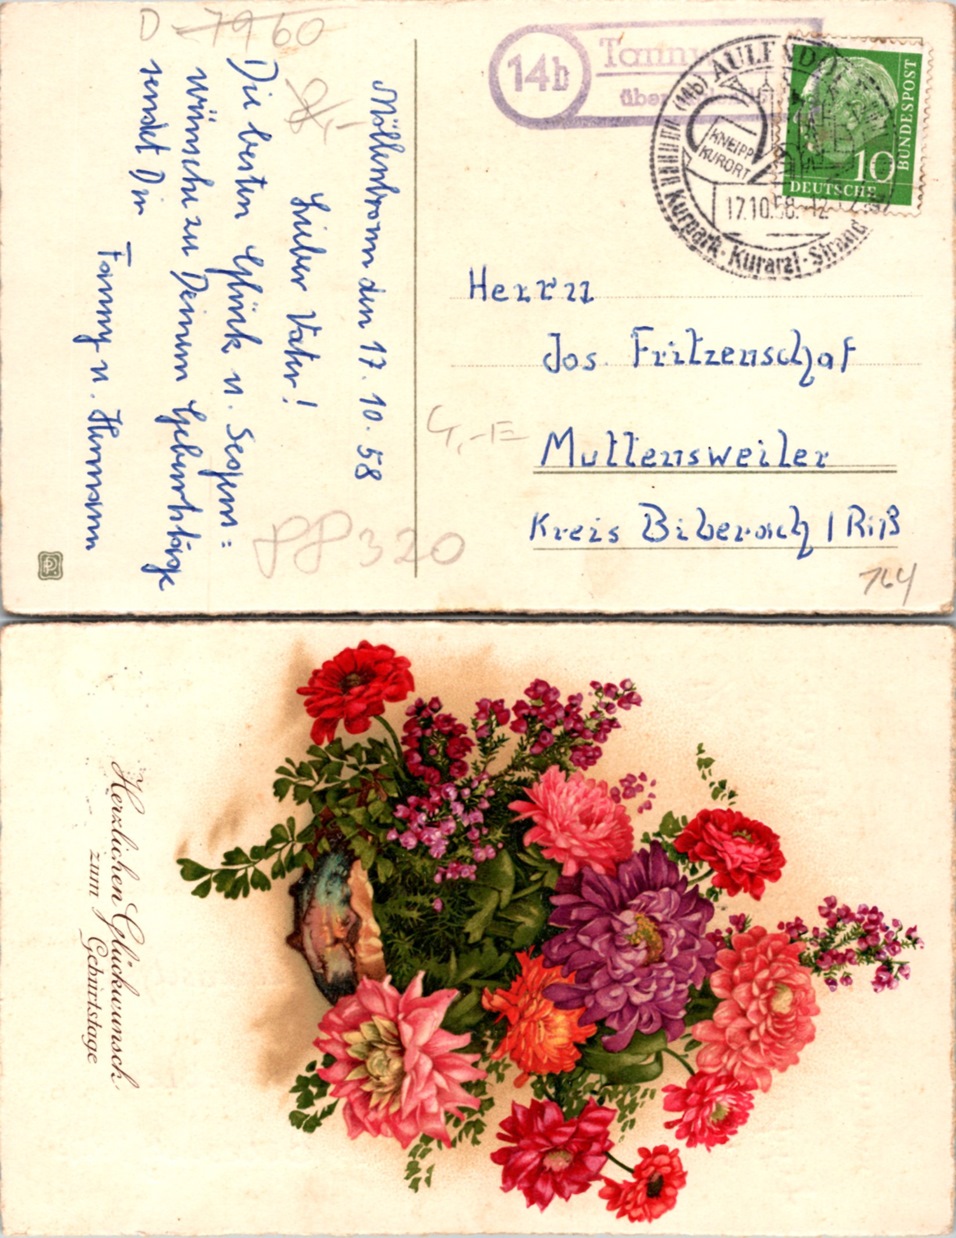 D-7960
14b
Tann
über
(14b) AULENDORF
KNEIPP
KURORT
17.10.58.-12
Kurpark·Kurarzt·Strand
10
DEUTSCHE
BUNDESPOST
Möllenbronn den 17. 10. 58
Lieber Vater!
Die besten Glück u. Segens=
wünsche zu Deinem Geburtstage
sendet Dir
Fanny u. Hermann
Herrn
Jos. Fritzenschaf
Muttensweiler
Kreis Biberach / Riß
G,-E
PP320
764
Herzlichen Glückwunsch
zum Geburtstage